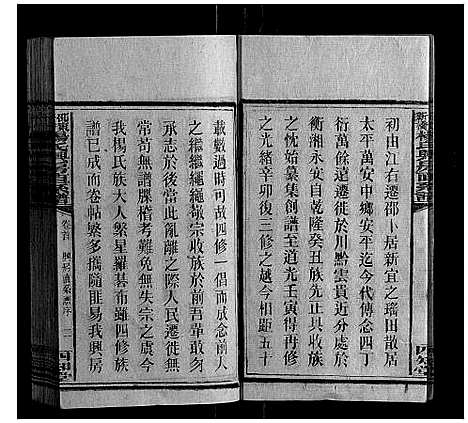 初由江右遷邵卜居新宜之瑤田散居
太平萬安中鄉安平迄今代傳念四丁
衍萬餘遠遷於川黔雲貴近分處於
衡湘永安自乾隆癸丑族先正具收族
之忱始彙集創譜至道光壬寅得再修
之光緒辛卯復三修之越今相距五十
載數過時可故四修一倡而咸念前人
之繼繼繩繩敬宗收族於前吾輩敢勿
承志於後當此亂離之際人民遷徙無
常苟無譜牒稽考難免無失宗之虞今
我楊氏族大人繁星羅碁布雖四修族
譜已成而卷帖繁多攜隨匪易我興房
卷首
四知堂
四知堂